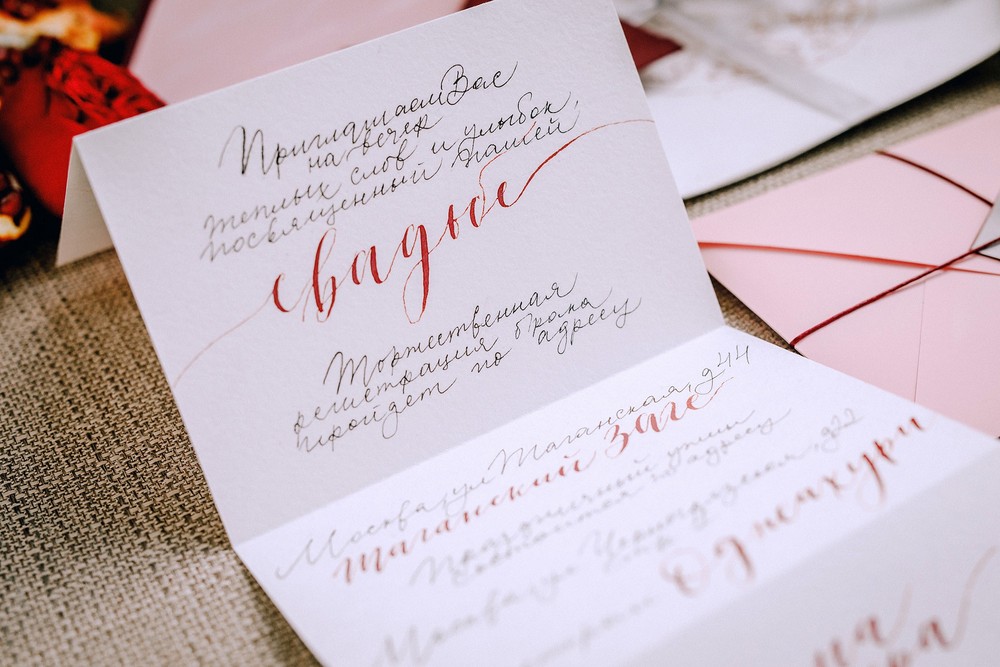 Приглашаем Вас
на вечер
теплых слов и улыбок,
посвященный нашей
свадьбе
Торжественная
регистрация брака
пройдет по адресу
Москва, ул Таганская, д 44
Таганский загс
Праздничный ужин
состоится по адресу
Москва, ул , д 22
Оджахури